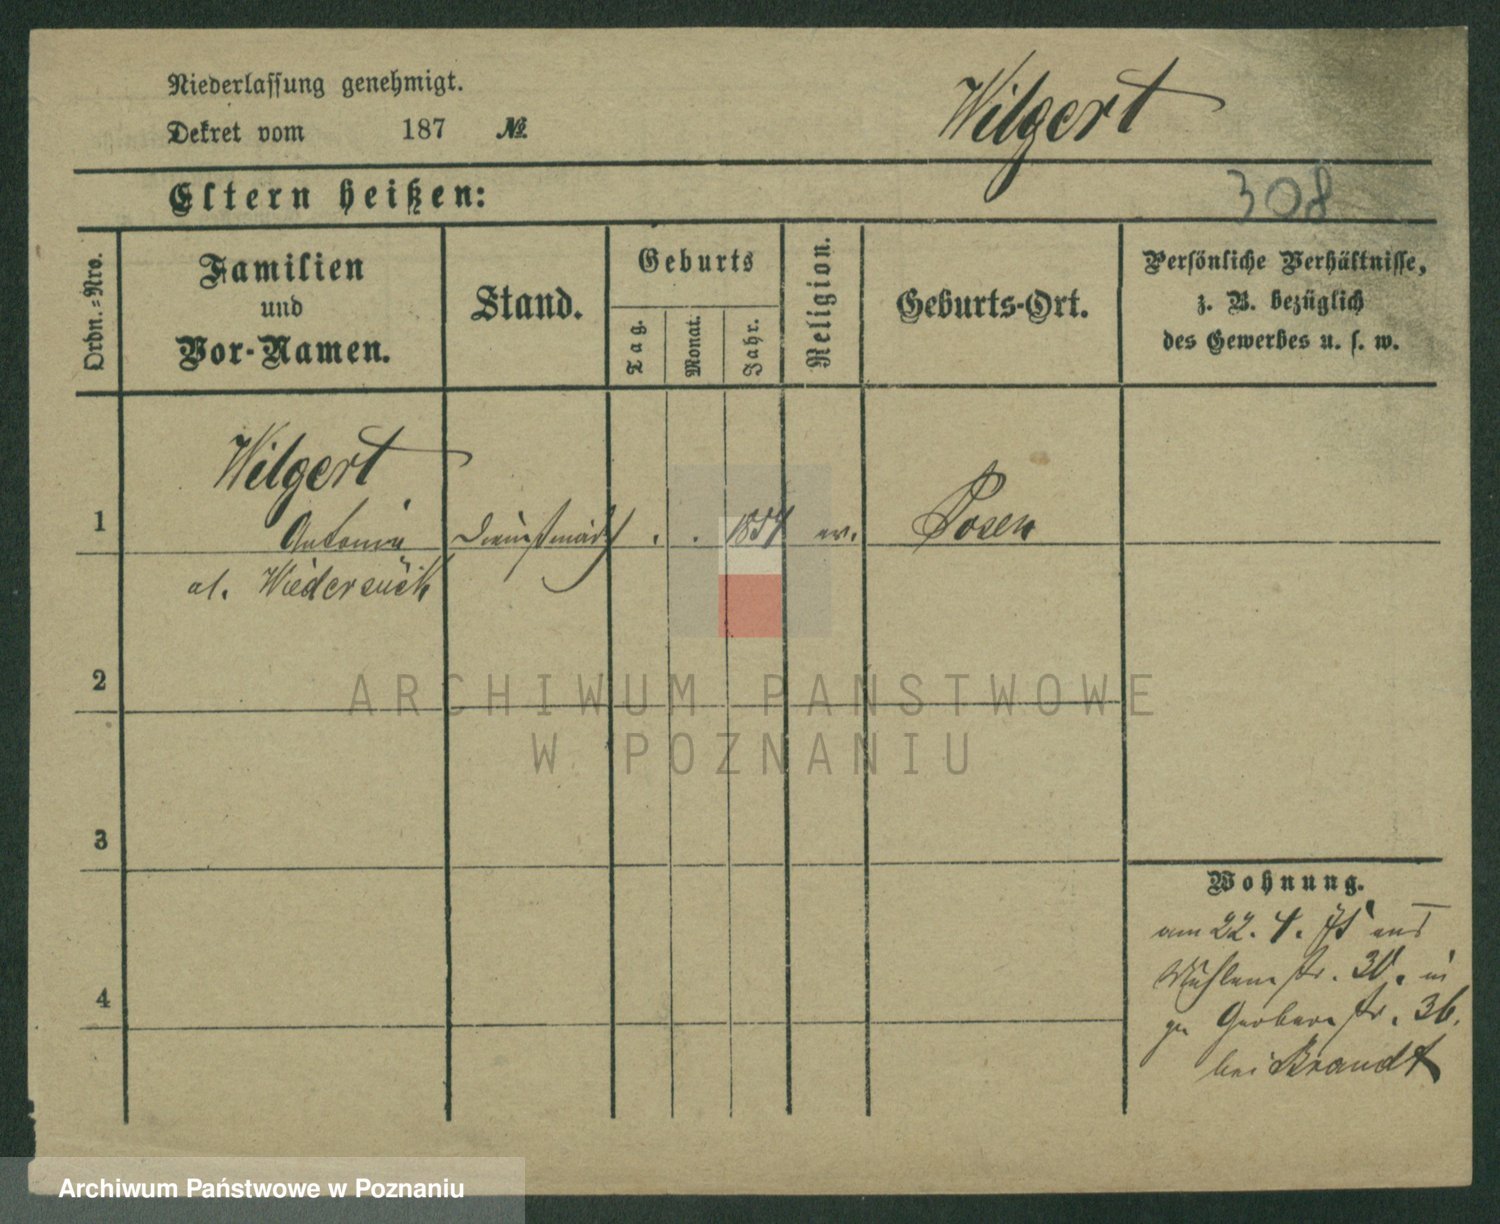 Niederlassung genehmigt.
Dekret vom 187 №
Wilgert
308
Eltern heißen:
Ordn.=Nro.
Familien
und
Vor-Namen.
Stand.
Geburts
Tag.
Monat.
Jahr.
Religion.
Geburts-Ort.
Persönliche Verhältnisse,
z. B. bezüglich
des Gewerbes u. s. w.
Wilgert
1 Antonia Dienstmäd . . 1857 ev. Posen
al.
2
ARCHIWUM PAŃSTWOWE
W POZNANIU
3
Wohnung.
am 22. 4. 75 aus
Mühlenstr. 30. in
Gerberstr. 36.
bei Brandt
4
Archiwum Państwowe w Poznaniu